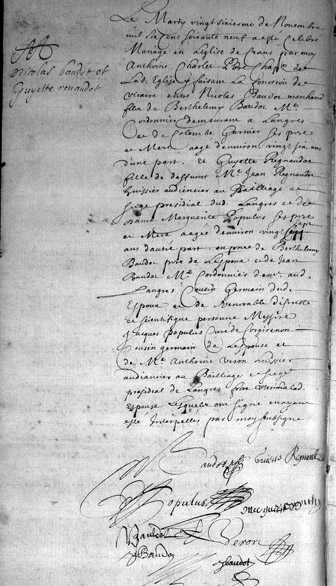 Nicolas Baudot et
Guyette renaudot
Le Mardy vingt sixiesme de Nouembre
mil six cens soixante neuf a esté celebré
Mariage en L'eglise de ceans par moy
Anthoine Charlet
Lad. Eglise faisant la fonction de
vicaire entre Nicolas Baudot marchand
filz de Berthelemy Baudot Me
Cordonnier demeurant a Langres
et de Colombe Garnier ses pere
et Mere aagé d'enuiron vingt six ans
d'une part. et Guyette Regnaudot
fille de deffunct Me Jean Regnaudot
huissier audiancier au Bailliage et
siege presidial dud. Langres et de
Dame Marguerite Populus ses pere
et Mere aagée d'enuiron vingt sept
ans d'autre part. en pnce de Berthelemy
Baudot pere de L'espoux et de Jean
Baudot Me Cordonnier aud.
Langres Cousin Germain dud.
Espoux et de Venerable discrette
et scientifique personne Messire
Jacques Populus Curé de
Cousin germain de L'espouse et
de Me Anthoine Veron huissier
audiancier au Bailliage et siege
presidial de Langres
espouse Lesquels ont signé
esté Interpellés par moy soubsigné
Baudot
Populus
Baudot Veron
JBaudot Baudot